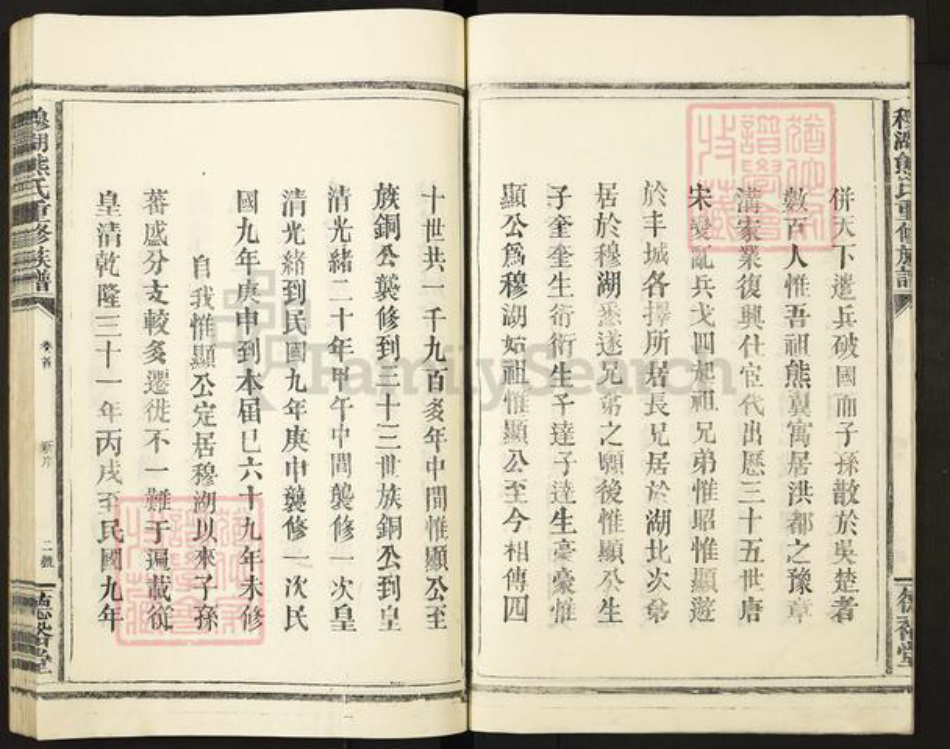 穆湖熊氏重修族譜
德裕堂
併天下遣兵破國而子孫散於吳楚者
數百人惟吾祖熊翼寓居洪都之豫章
溝家業復興仕宦代出歷三十五世唐
宋變亂兵戈四起祖兄弟惟昭惟顯遊
於丰城各擇所居長兄居於湖北次弟
居於穆湖悉遂兄弟之願後惟顯公生
子奎奎生衍衍生子達子達生豪豪惟
顯公爲穆湖始祖惟顯公至今相傳四
十世共一千九百多年中間惟顯公至
族銅公襲修到三十三世族銅公到皇
清光緒二十年甲午中間襲修一次皇
清光緒到民國九年庚申襲修一次民
國九年庚申到本届已六十九年未修
自我惟顯公定居穆湖以來子孫
蕃盛分支較多遷徙不一難于遍載從
皇清乾隆三十一年丙戌至民國九年
穆湖熊氏重修族譜
卷首
新序
二號
德裕堂
FamilySearch